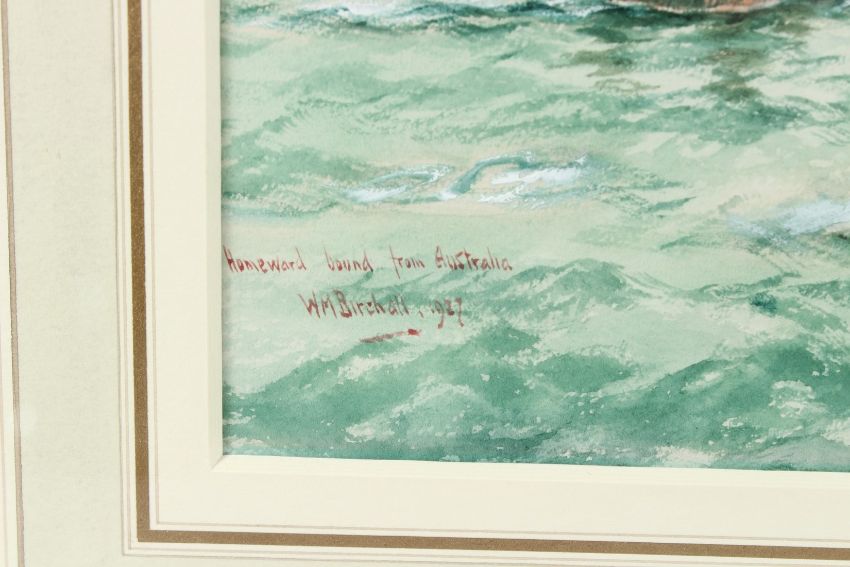 Homeward bound from Australia
WMBirchall. 1927